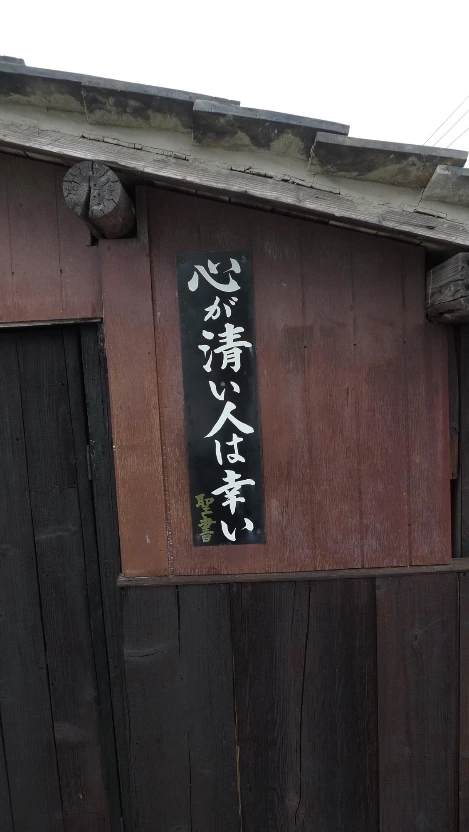 心が清い人は幸い
聖書